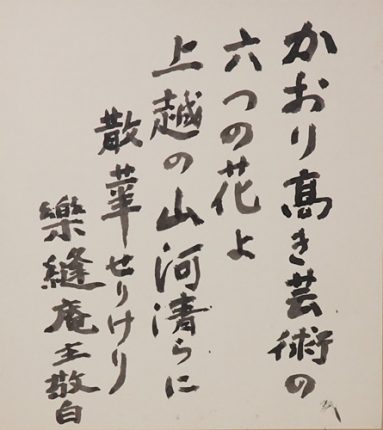 かおり高き芸術の
六つの花よ
上越の山河清らに
散華せりけり
樂縫庵主敬白